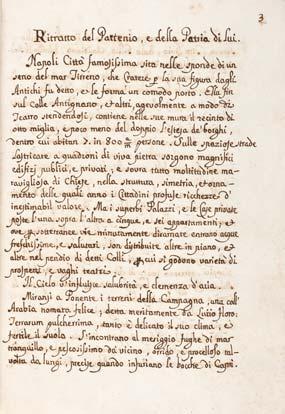 3
Ritratto del Partenio, e della Patria di lui.
Napoli Città famosissima sita nelle sponde di un
seno del mar Tirreno, che Cratere p la sua figura dagli
Antichi fu detto, e le forma un comodo porto. Ella fin
sul Colle Antignano, et altri, agevolmente a modo di
Teatro stendendosi, contiene nelle sue mura il recinto di
otto miglia, e poco meno del doppio l'estesa de' borghi,
dentro cui abitan persone. Sulle spaziose strade
lastricate a quadroni di viva pietra sorgono magnifici
edifizj publici, e privati, e sovra tutto moltitudine ma-
ravigliosa di Chiese, nella struttura, simetria, et orna-
mento delle quali anno i Cittadini profuse ricchezze d'
inestimabil valore. Ma i superbi Palazzi, e le case private
poste l'una sopra l'altra a cinque, e sei appartamenti, e
ove p sotterranee vie minutamente diramate entrano acque
freschissime, e salutari, son distribuite altre in piano, et
altre nel pendio di detti Colli, p cui si godono varietà di
prospetti, e vaghi teatri:
Il Cielo v'influisce salubrità, e clemenza d'aria.
Miransi a Ponente i terreni della Campagna, una coll'
Arabia nomata felice, detta meritamente da Lucio floro:
Terrarum pulcherrima, tanto è delicato il suo clima, et
fertile il suolo. S'incontrano al meriggio fughe di mar
tranquillo, e pescosissimo da vicino, orrido, e procelloso tal-
volta da lungi, precise quando infuriano le bocche di Capri.